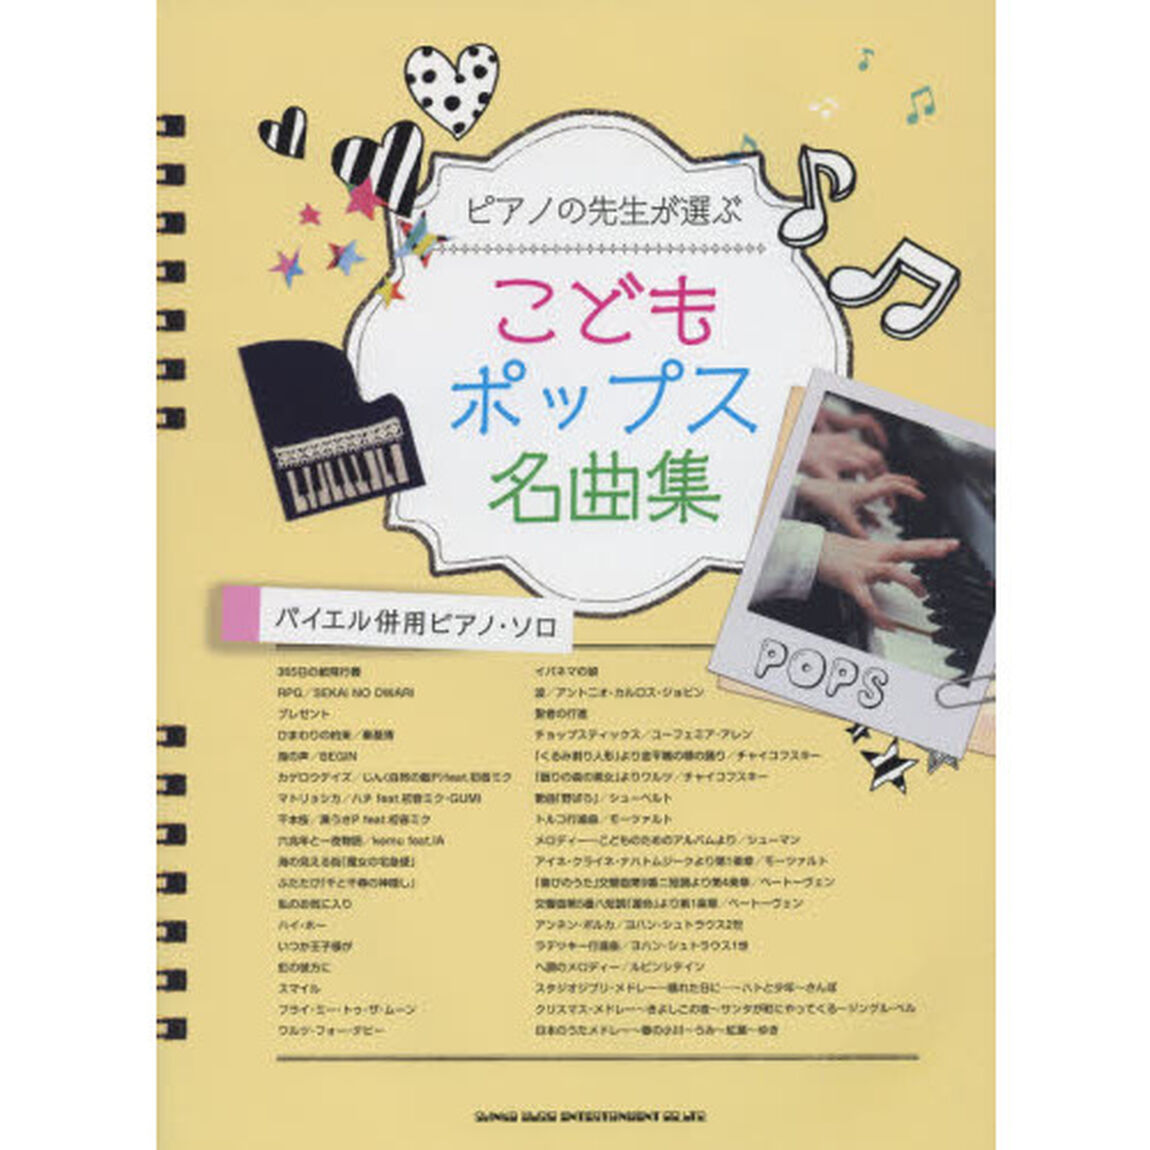 ピアノの先生が選ぶ
こども
ポップス
名曲集
POPS
バイエル併用ピアノ・ソロ
365日の紙飛行機
RPG／SEKAI NO OWARI
プレゼント
ひまわりの約束／秦基博
海の声／BEGIN
カゲロウデイズ／じん(自然の敵P)feat.初音ミク
マトリョシカ／ハチ feat.初音ミク・GUMI
千本桜／黒うさP feat.初音ミク
六兆年と一夜物語／kemu feat.IA
海の見える街「魔女の宅急便」
ふたたび「千と千尋の神隠し」
私のお気に入り
ハイ・ホー
いつか王子様が
虹の彼方に
スマイル
フライ・ミー・トゥ・ザ・ムーン
ワルツ・フォー・デビー
イパネマの娘
波／アントニオ・カルロス・ジョビン
聖者の行進
チョップスティックス／ユーフェミア・アレン
「くるみ割り人形」より金平糖の精の踊り／チャイコフスキー
「眠りの森の美女」よりワルツ／チャイコフスキー
歌曲「野ばら」／シューベルト
トルコ行進曲／モーツァルト
メロディー―こどものためのアルバムより／シューマン
アイネ・クライネ・ナハトムジークより第1楽章／モーツァルト
「喜びのうた」交響曲第9番ニ短調より第4楽章／ベートーヴェン
交響曲第5番ハ短調「運命」より第1楽章／ベートーヴェン
アンネン・ポルカ／ヨハン・シュトラウス2世
ラデツキー行進曲／ヨハン・シュトラウス1世
ヘ調のメロディー／ルビンシテイン
スタジオジブリ・メドレー～晴れた日に…～ハトと少年～さんぽ
クリスマス・メドレー～きよしこの夜～サンタが町にやってくる～ジングル・ベル
日本のうたメドレー～春の小川～うみ～紅葉～ゆき
SHINKO MUSIC ENTERTAINMENT CO.,LTD.